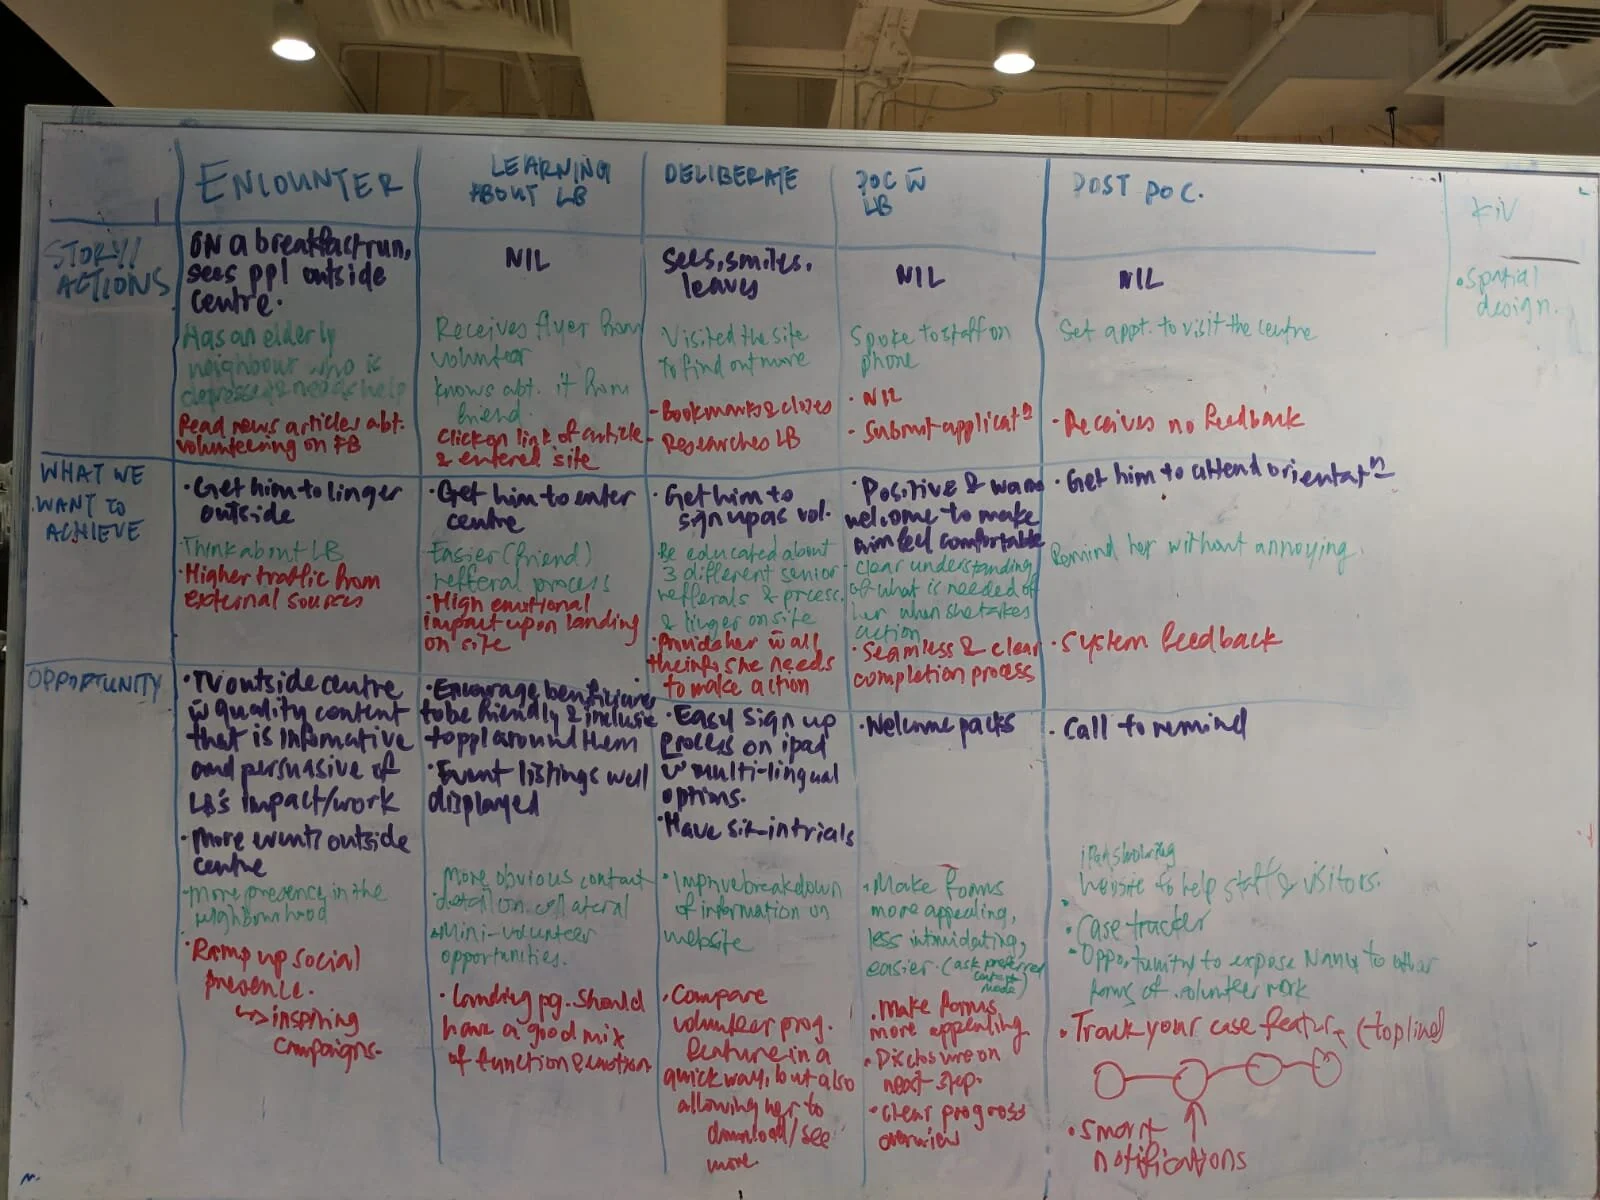 ENCOUNTER
LEARNING
ABOUT LB
DELIBERATE
POC W̄
LB
POST POC.
KIV
STORY//
ACTIONS
ON a breakfast run,
sees ppl outside
centre.
Has an elderly
neighbour who is
depressed & needs help
Read news articles abt.
volunteering on FB
NIL
Receives flyer from
volunteer
knows abt. it from
friend.
Click on link of article
& entered site
sees, smiles,
leaves
Visited the site
to find out more
- Bookmarks & closes
- Researches LB
NIL
Spoke to staff on
phone
• NIL
• Submit applicatⁿ
NIL
Set appt. to visit the centre
• Receives no feedback
• Spatial
design.
WHAT WE
WANT TO
ACHIEVE
• Get him to linger
outside
Think about LB
• Higher traffic from
external sources
• Get him to enter
centre
Easier (friend)
refferal process
• High emotional
impact upon landing
on site
• Get him to
sign up as vol.
Be educated about
3 different senior
refferals & process.
& linger on site
• Provide her w̄ all
the info she needs
to make action
• Positive & warm
welcome to make
him feel comfortable
clear understanding
of what is needed of
her when she takes
action
• Seamless & clear
completion process
• Get him to attend orientatⁿ
Remind her without annoying.
• System feedback
OPPORTUNITY
• TV outside centre
w̄ quality content
that is informative
and persuasive of
LB's impact/work
• More events outside
centre
- More presence in the
neighbourhood
• Ramp up social
presence.
↳> inspiring
campaigns.
• Encourage beneficiaries
to be friendly & inclusive
to ppl around them
• Event listings well
displayed
More obvious contact
detail on collateral
• Mini-volunteer
opportunities.
• Landing pg. should
have a good mix
of function & emotion
• Easy sign up
process on ipad
w̄ multi-lingual
options.
• Have sit-in trials
• Improve breakdown
of information on
website
• Compare
volunteer prog.
feature in a
quick way, but also
allowing her to
download/see
more.
• Welcome packs
• Make forms
more appealing,
less intimidating,
easier. (ask preferred
contact
mode)
• Make forms
more appealing
• Disclosure on
next step.
• Clear progress
overview
• Call to remind
ipad showing
website to help staff & visitors.
• Case tracker
• Opportunity to expose Nanu to other
forms of volunteer work
• Track your case feature (topline)
• Smart
notifications